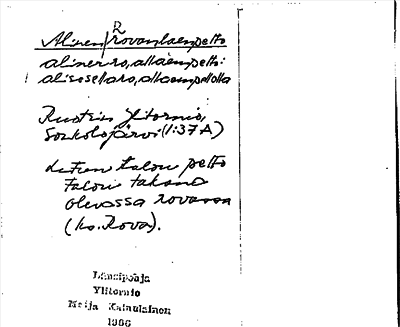 R
Alinen/Rovanlaenpelto
alinen ro, allaempelto:
alisesellaro, allaempellolla
Ylitornio,
Sockolojärvi (1:37 A)
talon pelto
talon takana
olevassa rovassa
(ks. Rova).
Länsipohja
Ylitornio
Meija Kainulainen
1966